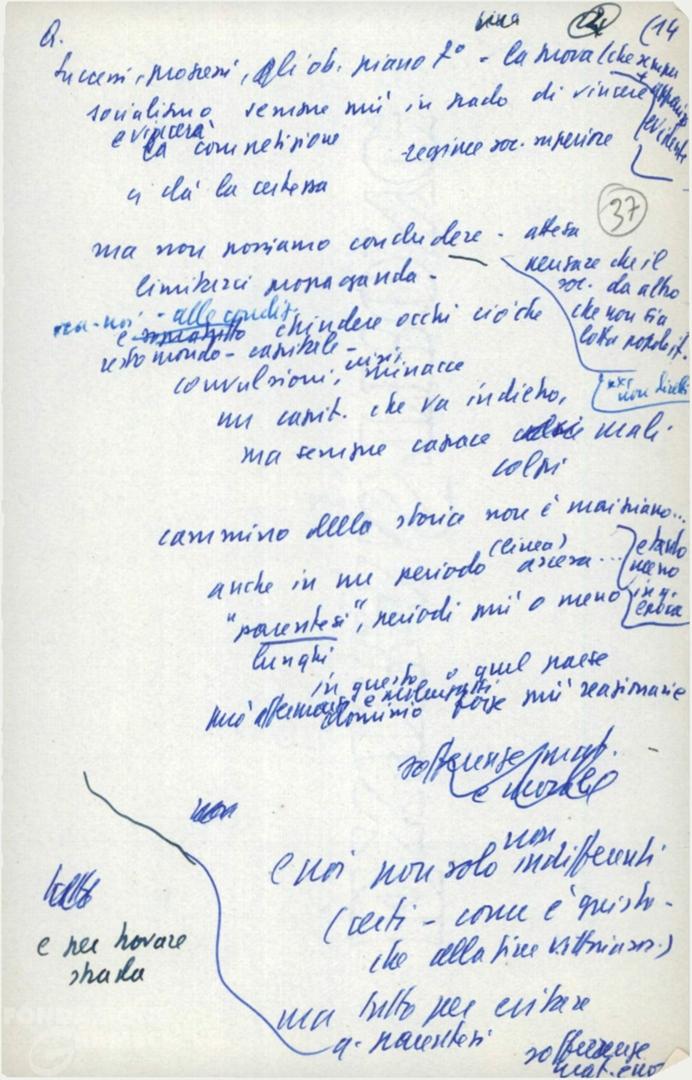 una (14
Q.
Successi, progressi, gli ob. piano 7º - la prova (che sempre
+ apparirà evidente
socialismo sempre più in grado di vincere
e vincerà
la competizione regime soc. superiore
ci dà la certezza
37
ma non possiamo concludere - attesa
limitarci propaganda -
pensare che il
soc. da altro
che non sia
lotta
- alle condiz.
e chiudere occhi ciò che
resto mondo - capitale -
convulsioni, crisi, minacce
non diretti
un capit. che va indietro,
ma sempre capace mali
colpi
cammino della storia non è mai piano...
e tanto
meno
in q.
epoca
anche in un periodo (linea) ascesa...
"parentesi", periodi più o meno
lunghi
in questo o quel paese
può affermarsi e prolungarsi
dominio forze più reazionarie
sofferenze mat.
e morali
non
e noi non solo non indifferenti
(certi - come è giusto -
che alla fine vittoria soc.)
e per trovare
strada
ma tutto per evitare
q. parentesi sofferenze
mat. e mor.